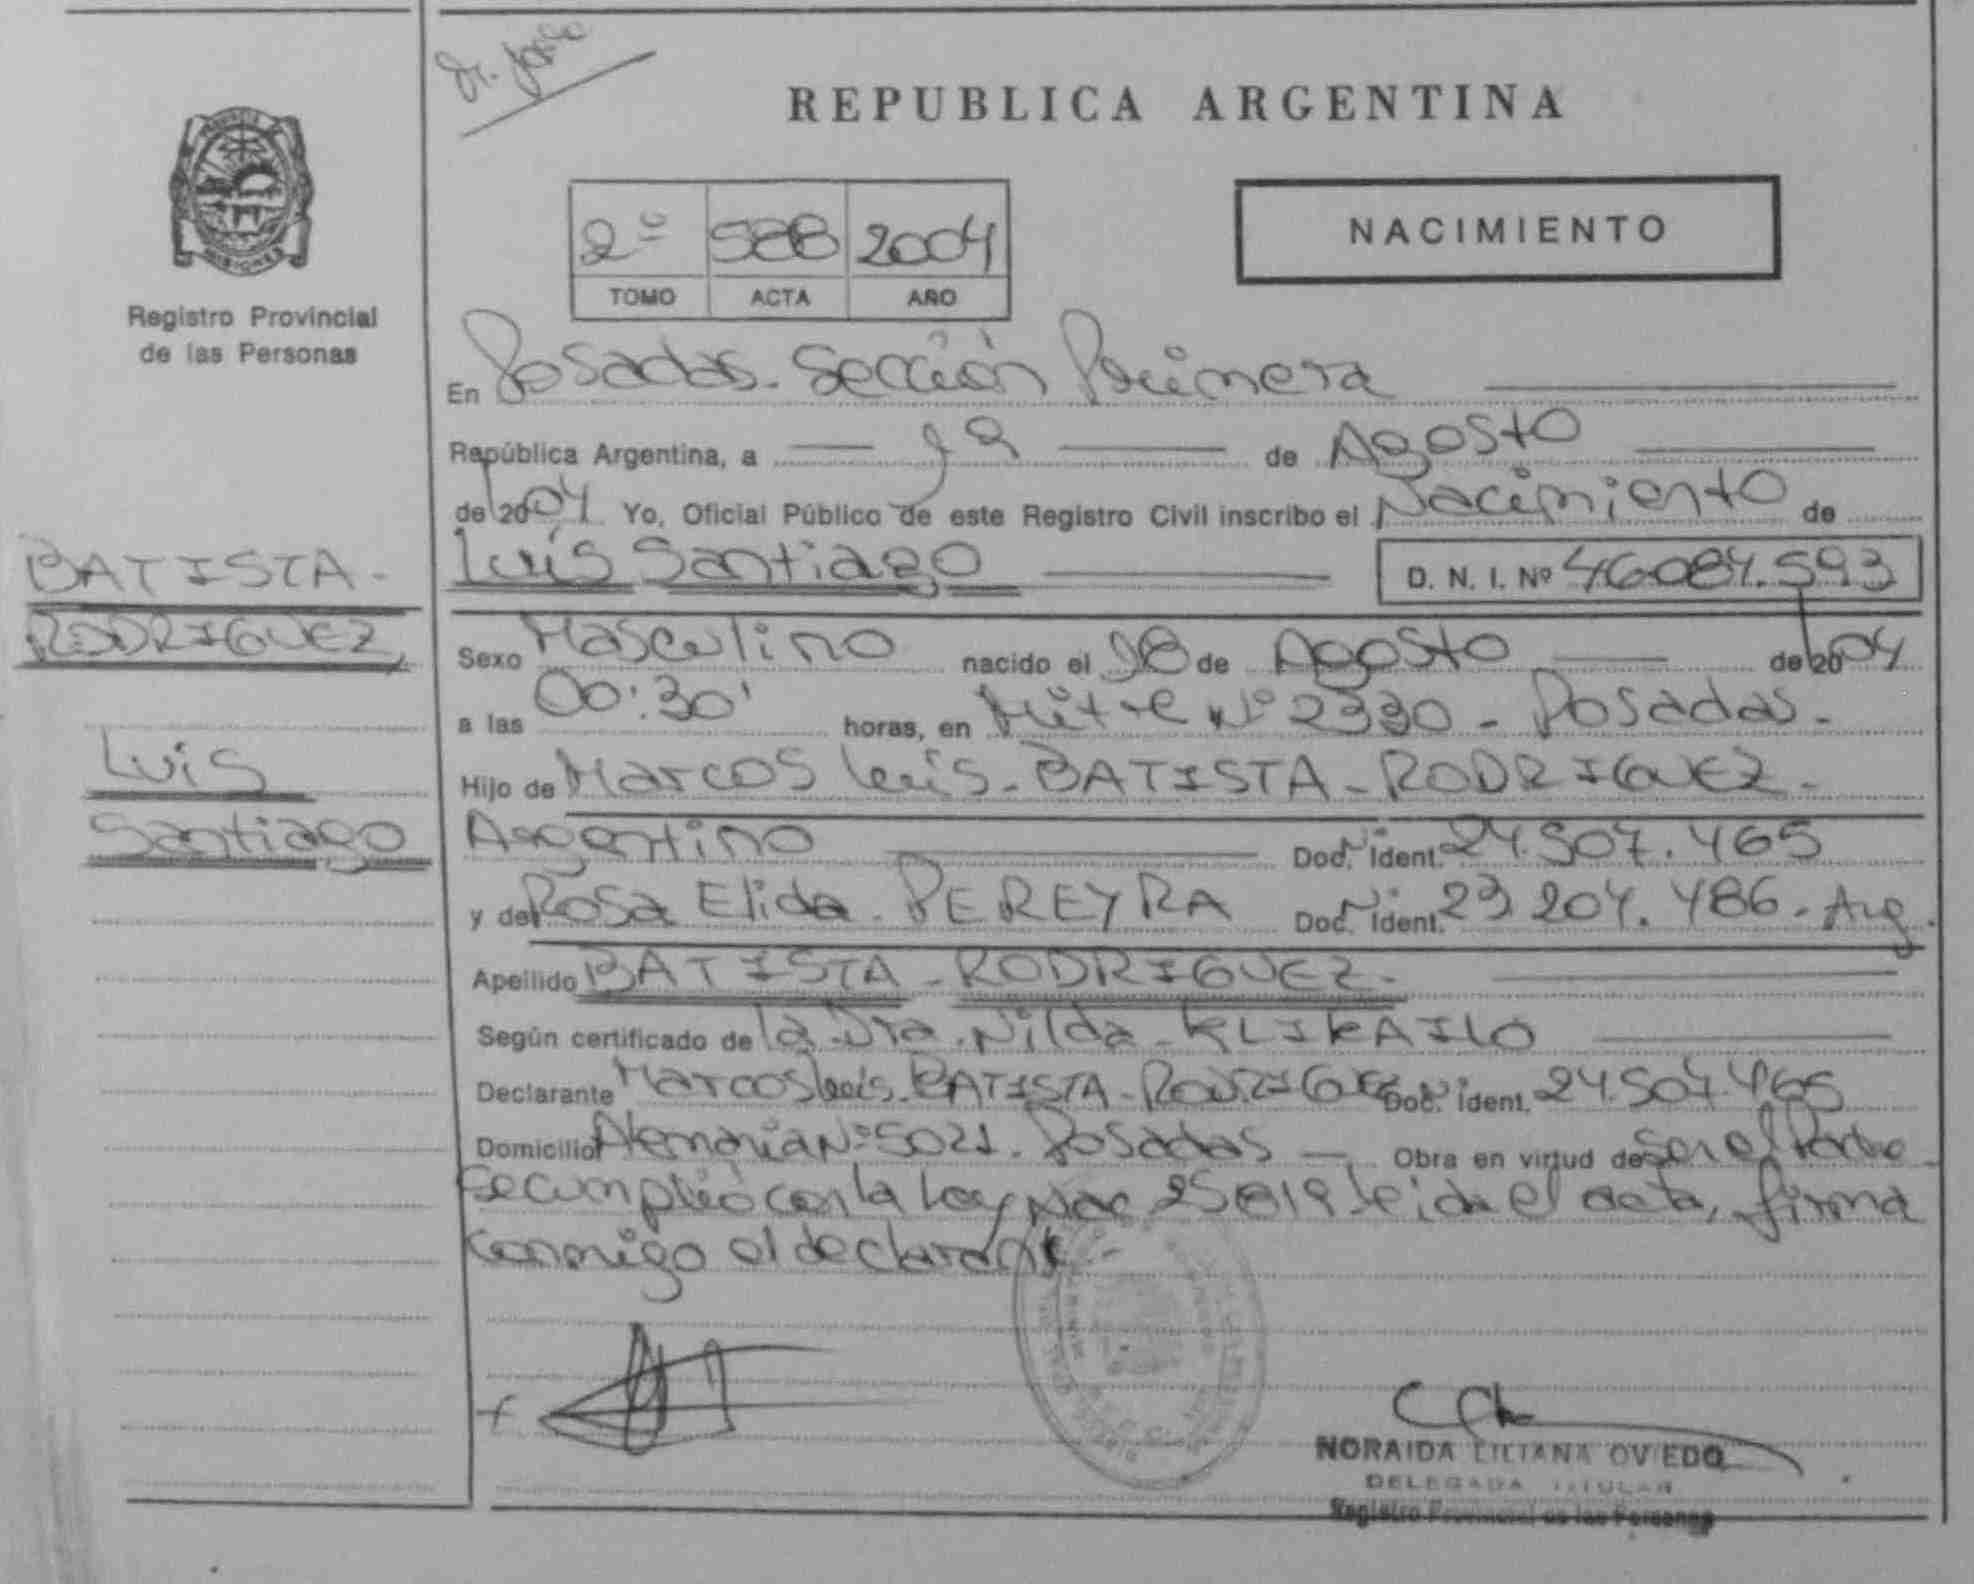 Dr. José
REPUBLICA ARGENTINA
NACIMIENTO
2º 588 2004
TOMO ACTA AÑO
Registro Provincial
de las Personas
En Posadas. Sección Primera
República Argentina, a de Agosto
de 2004 Yo, Oficial Público de este Registro Civil inscribo el Nacimiento de
Luis Santiago D. N. I. Nº 46.084.593
BATISTA-
RODRIGUEZ,
Luis
Santiago
Sexo Masculino nacido el 18 de Agosto de 2004
a las 00:30' horas, en Mitre Nº 2330 - Posadas.
Hijo de Marcos Luis - BATISTA - RODRIGUEZ -
Argentino Doc. Nº Ident. 24.507.465
y de Rosa Elida - PEREYRA Doc. Nº Ident. 23 204.486 - Arg.
Apellido BATISTA - RODRIGUEZ -
Según certificado de la Dra. Nilda - KLIKAILO
Declarante Marcos Luis - BATISTA - RODRIGUEZ Doc. Nº Ident. 24.507.465
Domicilio Alemania Nº 5021. Posadas — Obra en virtud de ser el Padre
Se cumplió con la Ley Nac 25819 leida el acta, firma
conmigo el declarante -
NORAIDA LILIANA OVIEDO
DELEGADA TITULAR
Registro Provincial de las Personas